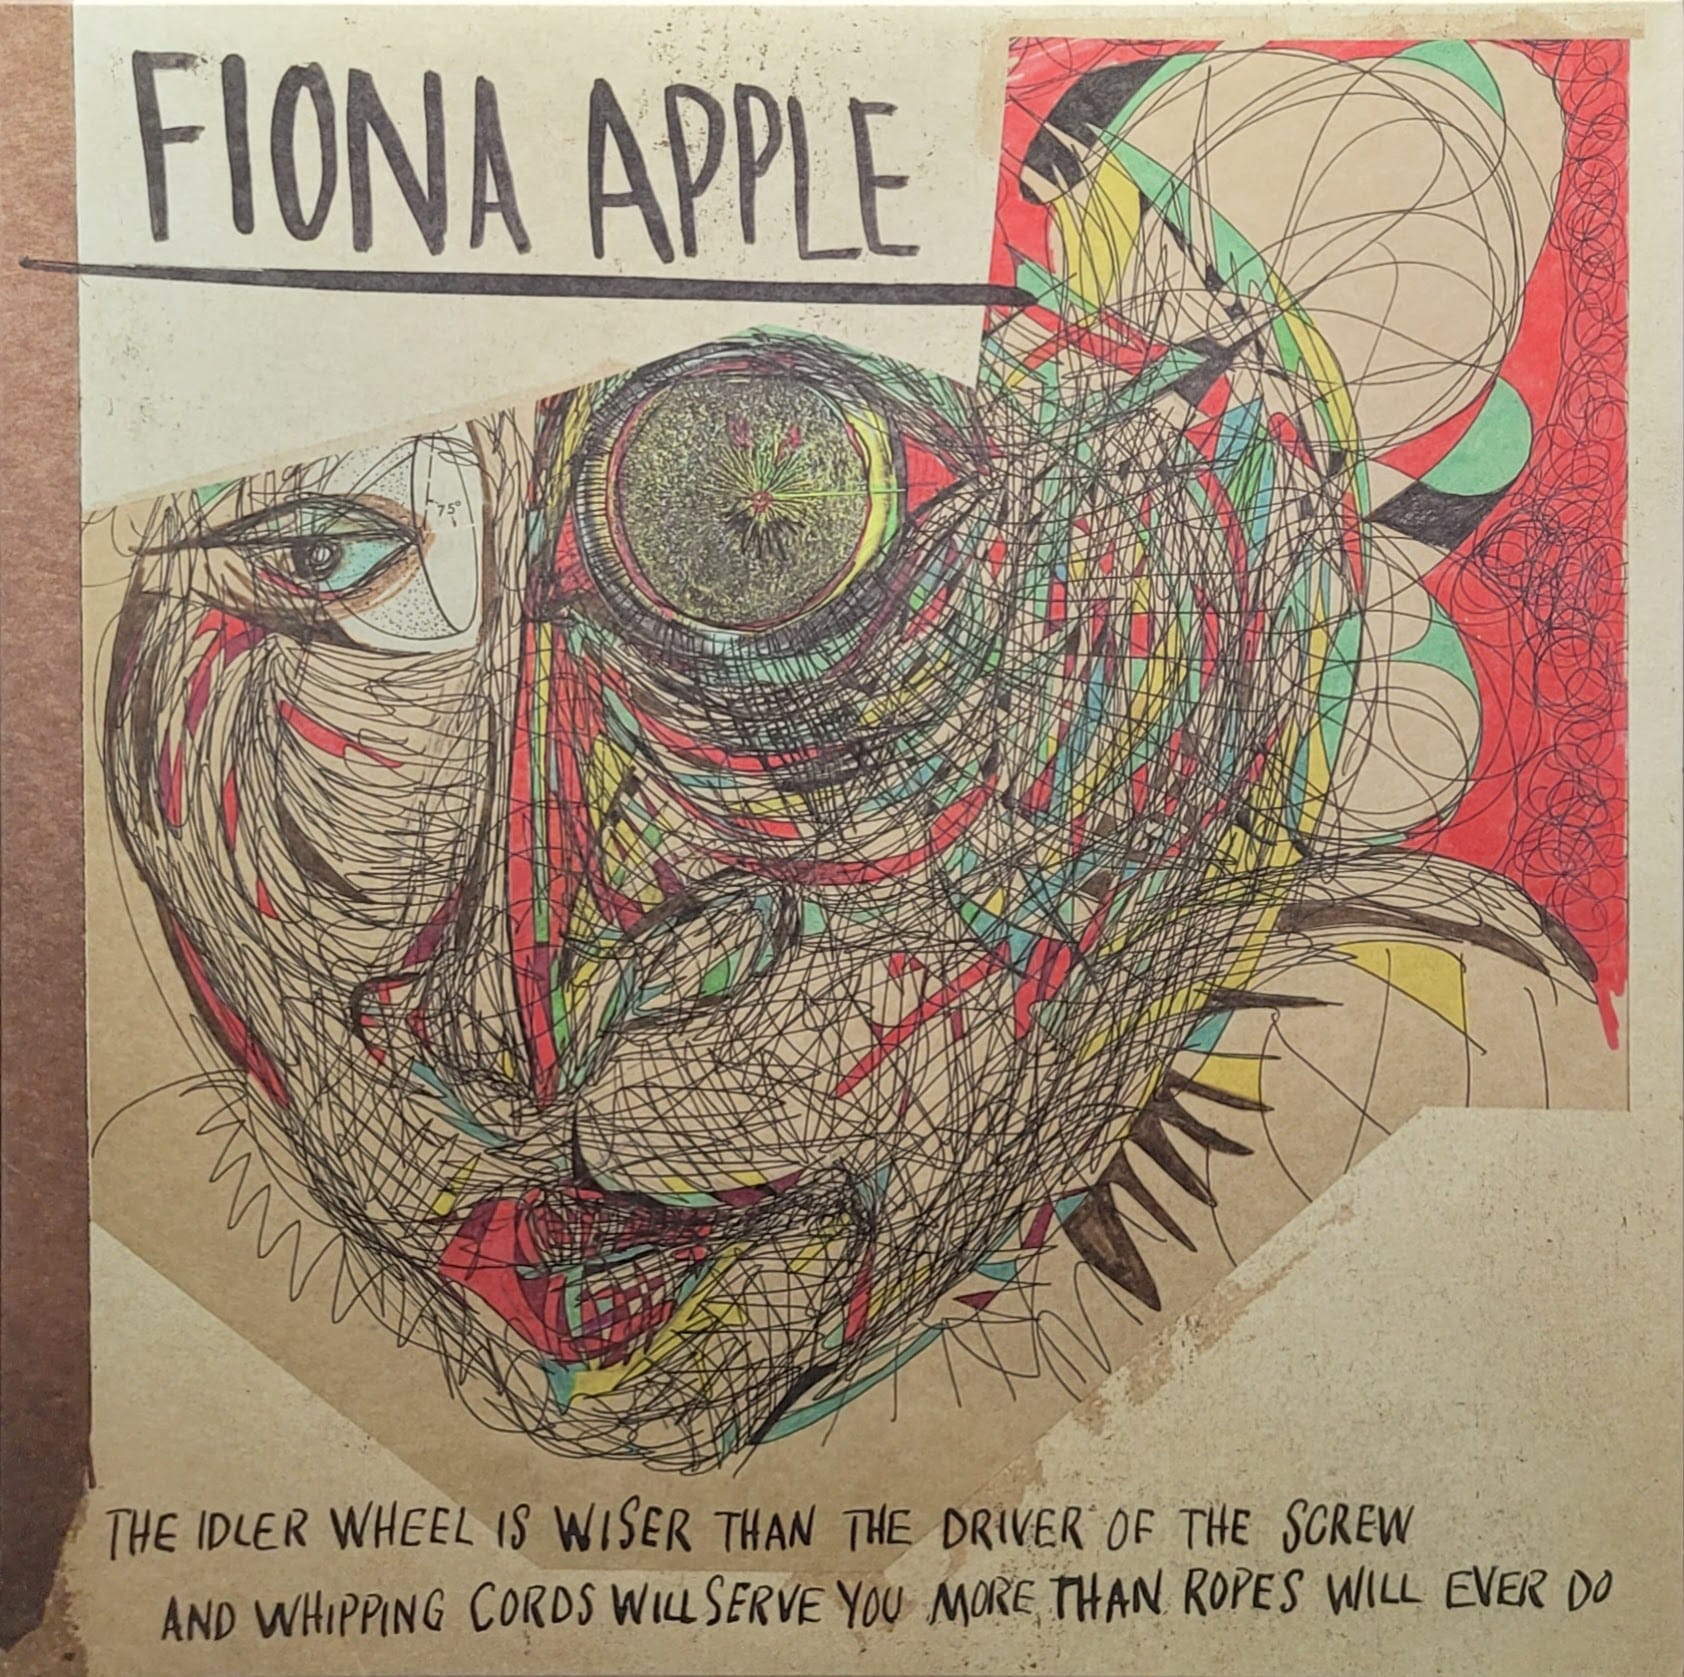 FIONA APPLE
75°
THE IDLER WHEEL IS WISER THAN THE DRIVER OF THE SCREW
AND WHIPPING CORDS WILL SERVE YOU MORE THAN ROPES WILL EVER DO